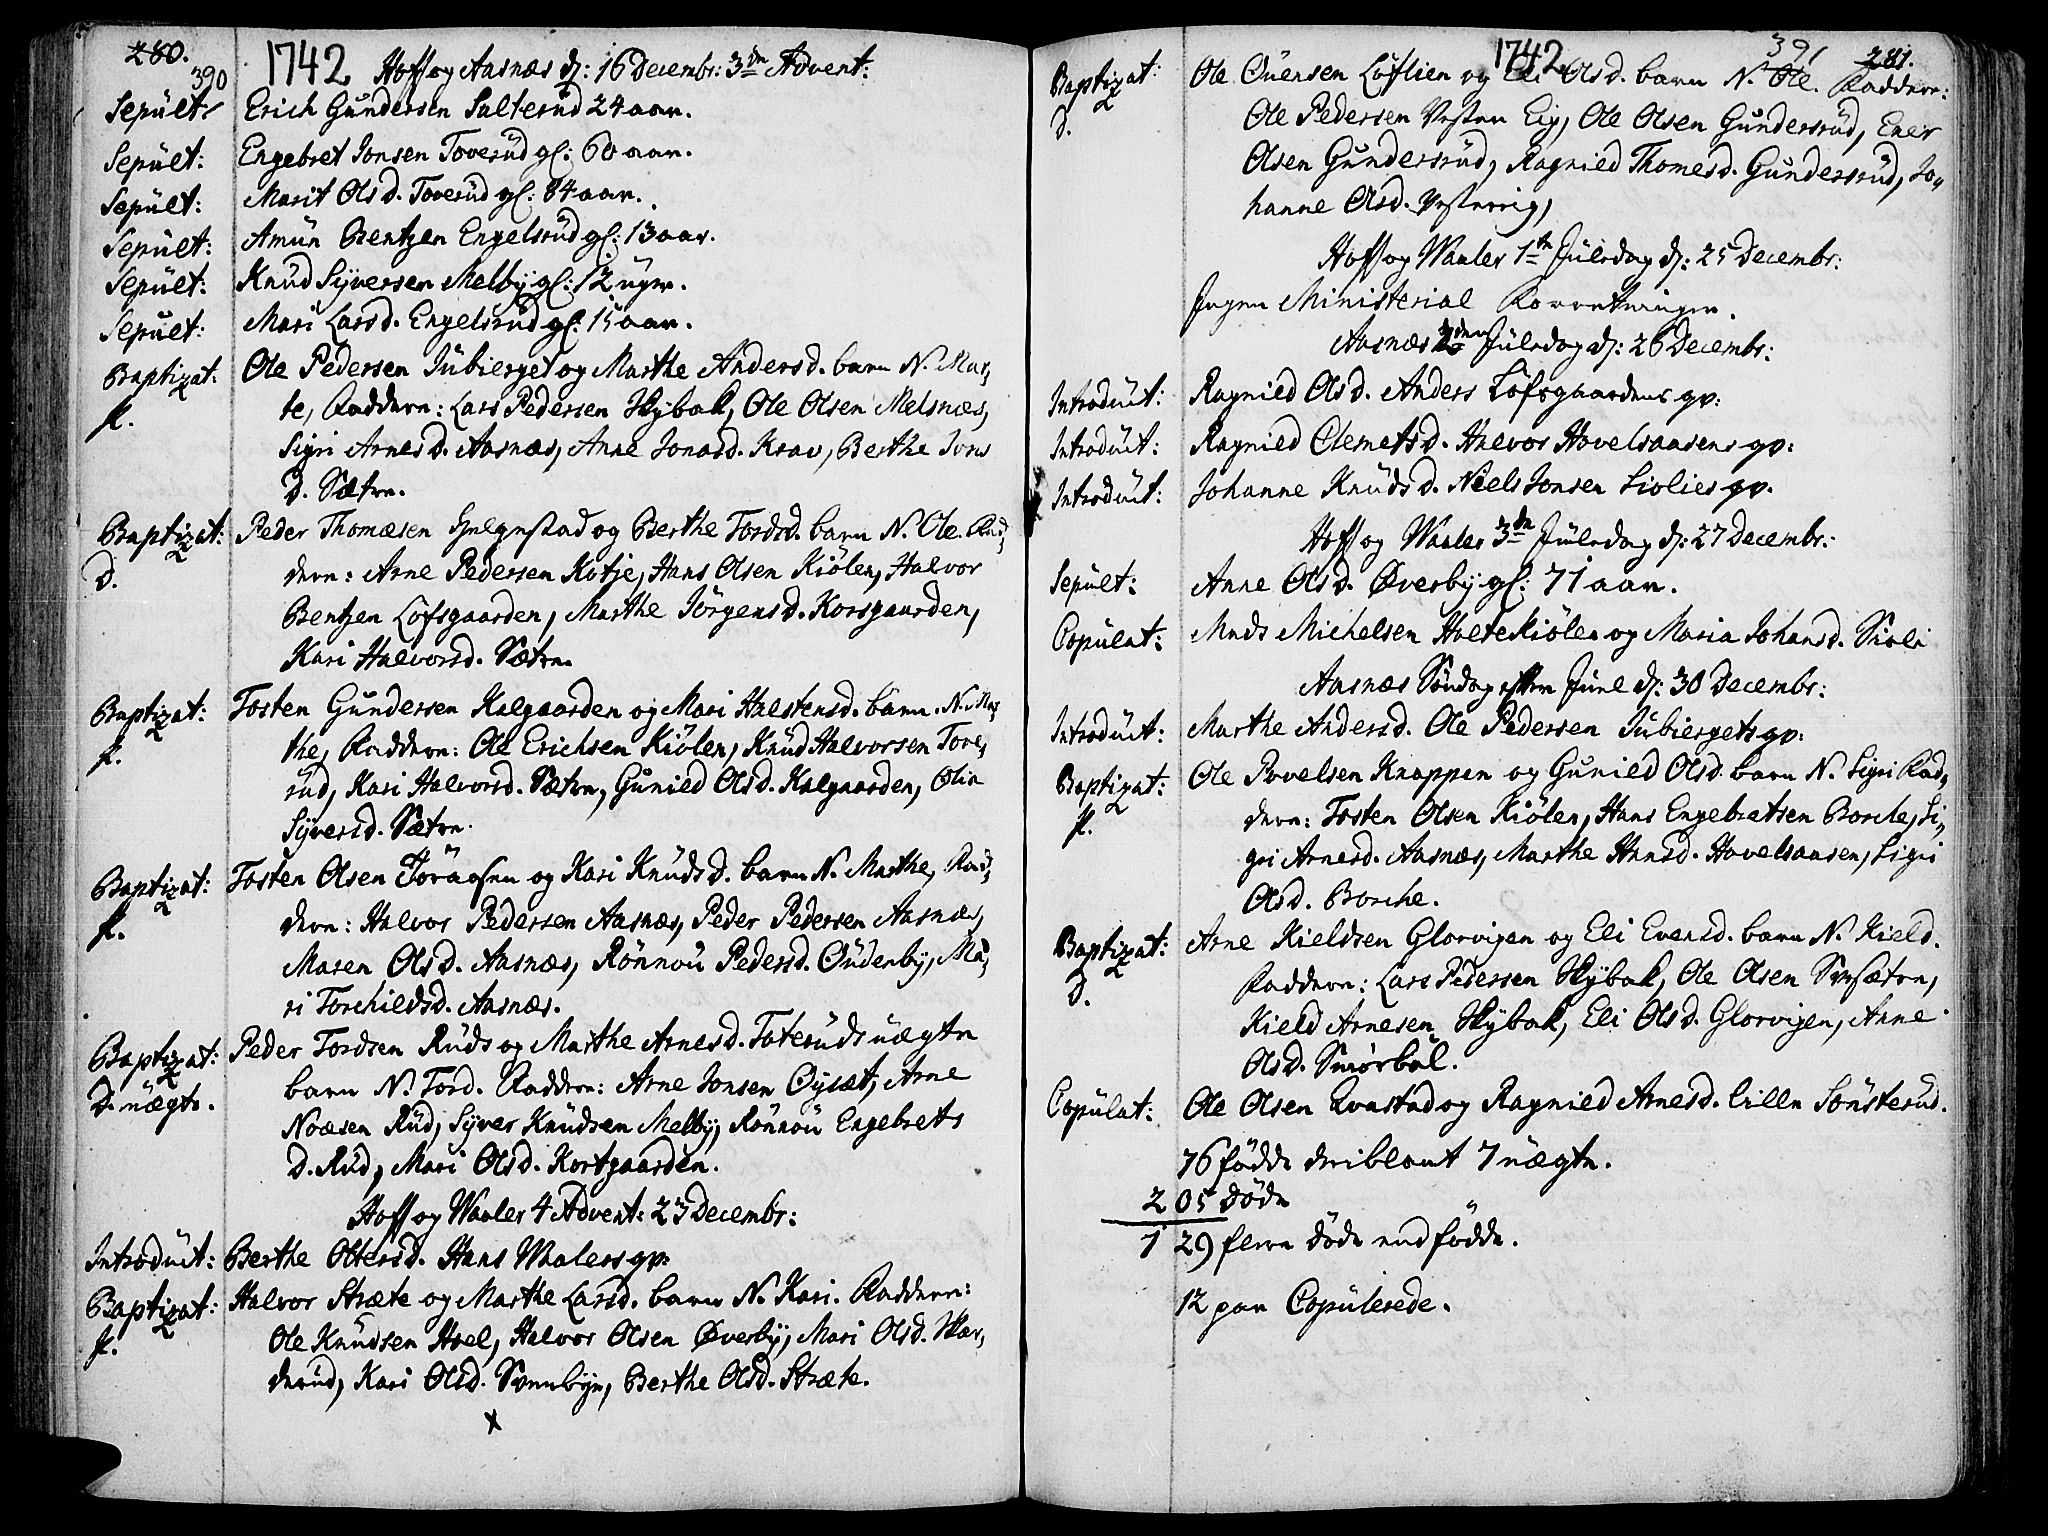 280.
390
1742 Hoff og Aasnæs dj: 16 Decembr: 3dn Advent:
Sepült: Erich Gündersen Salterüd 24 aar.
Sepült: Engebret Jonsen Toverüd gl: 60 aar.
Sepült: Marit Olsd. Toverüd gl: 84 aar.
Sepült: Amün Bentzen Engelsrüd gl: 13 aar.
Sepült: Knüd Sÿversen Melbÿ gl: 12 üger.
Sepült: Mari Larsd. Engelsrüd gl: 15 aar.
Baptizat: Ole Pedersen Jübierget og Marthe Andersd. barn N. Mar,
te, Faddere: Lars Pedersen Skÿbak, Ole Olsen Melsnæs,
Sigri Arnesd. Aasnæs, Anne Jonasd. Krav, Berthe Jons
D. Sætre.
Baptizat: Peder Thomæsen Hielgestad og Berthe Tordsd. barn N. Ole. Fad,
D. dere: Arne Pedersen Kotje, Hans Olsen Kiölen, Halvor
Bentzen Löfsgaarden, Marthe Jörgensd. Korsgaarden,
Kari Halvorsd. Sætre.
Baptizat: Tosten Gündersen Kalgaarden og Mari Halstensd. barn. N. Mar
the, Faddere: Ole Erichsen Kiölen, Knüd Halvorsen Tove,
rüd, Kari Halvorsd. Sætre, Günild Olsd. Kalgaarden, Olia
Sÿversd. Sætre.
Baptizat: Tosten Olsen Töraasen og Kari Knüdsd. barn N. Marthe, Fad,
dere: Halvor Pedersen Aasnæs, Peder Pedersen Aasnæs,
Maren Olsd. Aasnæs, Rönnoü Pedersd. Oüdenbÿ, Ma,
ri Torchildsd. Aasnæs.
Baptizat: Peder Tordsen Rüds og Marthe Arnesd. Toterüds üægte
D. üægte. barn N. Tord. Faddere: Arne Jonsen Oÿsæt, Arne
Noæsen Rüd, Sÿver Knüdsen Melbÿ, Rönnoü Engebrets
D. Rüd, Mari Olsd. Kortgaarden.
Hoff og Waaler 4 Advent: 23 Decembr:
Introdüct: Berthe Ottersd. Hans Waalers qv:
Baptizat: Halvor Stræte og Marthe Larsd. barn N. Kari. Faddere:
Ole Knüdsen Hoel, Halvor Olsen Øverbÿ, Mari Olsd. Skar,
derüd, Kari Olsd. Svenbÿe, Berthe Olsd. Stræte.
x
1742
391
281.
Baptizat: Ole Evensen Löflien og Eli Olsd. barn N. Ole. Faddere:
D. Ole Pedersen Vester Eig, Ole Olsen Gündersrüd, Ener
Olsen Gündersrüd, Ragnild Thomesd. Gündersrüd, Jo,
hanne Olsd. Vestereig,
Hoff og Waaler 1te Jüledag dj: 25 Decembr:
Ingen Ministerial Forretninger.
Aasnæs 2den Jüledag dj: 26 Decembr:
Introdüct: Ragnild Olsd. Anders Löfsgaardens qv:
Introdüct: Ragnild Clemetsd. Halvor Hovelsaasens qv:
Introdüct: Johanne Knüdsd. Niels Jonsen Liolies qv.
Hoff og Waaler 3de Jüledag dj: 27 Decembr:
Sepült: Anne Olsd. Øverbÿ gl: 71 aar.
Copülat: Mads Michelsen Holtekiölen og Maria Johansd. Sioli
Aasnæs Söndag efter Jüul dj: 30 Decembr:
Introdüct: Marthe Andersd. Ole Pedersen Jübiergets qv:
Baptizat: Ole Povelsen Knappen og Günild Olsd. barn N. Sigri Fad,
dere: Tosten Olsen Kiölen, Hans Engebretsen Borche, Si,
gri Arnesd. Aasnæs, Marthe Hansd. Hovelsaasen, Sigri
Olsd. Borche.
Baptizat: Arne Kieldsen Glorvigen og Eli Evensd. barn N. Kield.
D. Faddere: Lars Pedersen Skÿbak, Ole Olsen Svesætre,
Kield Arnesen Skÿbak, Eli Olsd. Glorvigen, Anne
Olsd. Smörbøl.
Copülat: Ole Olsen Qvastad og Ragnild Arnesd. Lille Sönsterüd.
76 födde deriblant 7 üægte.
205 döde
129 flere döde end födde.
12 par Copülerede.